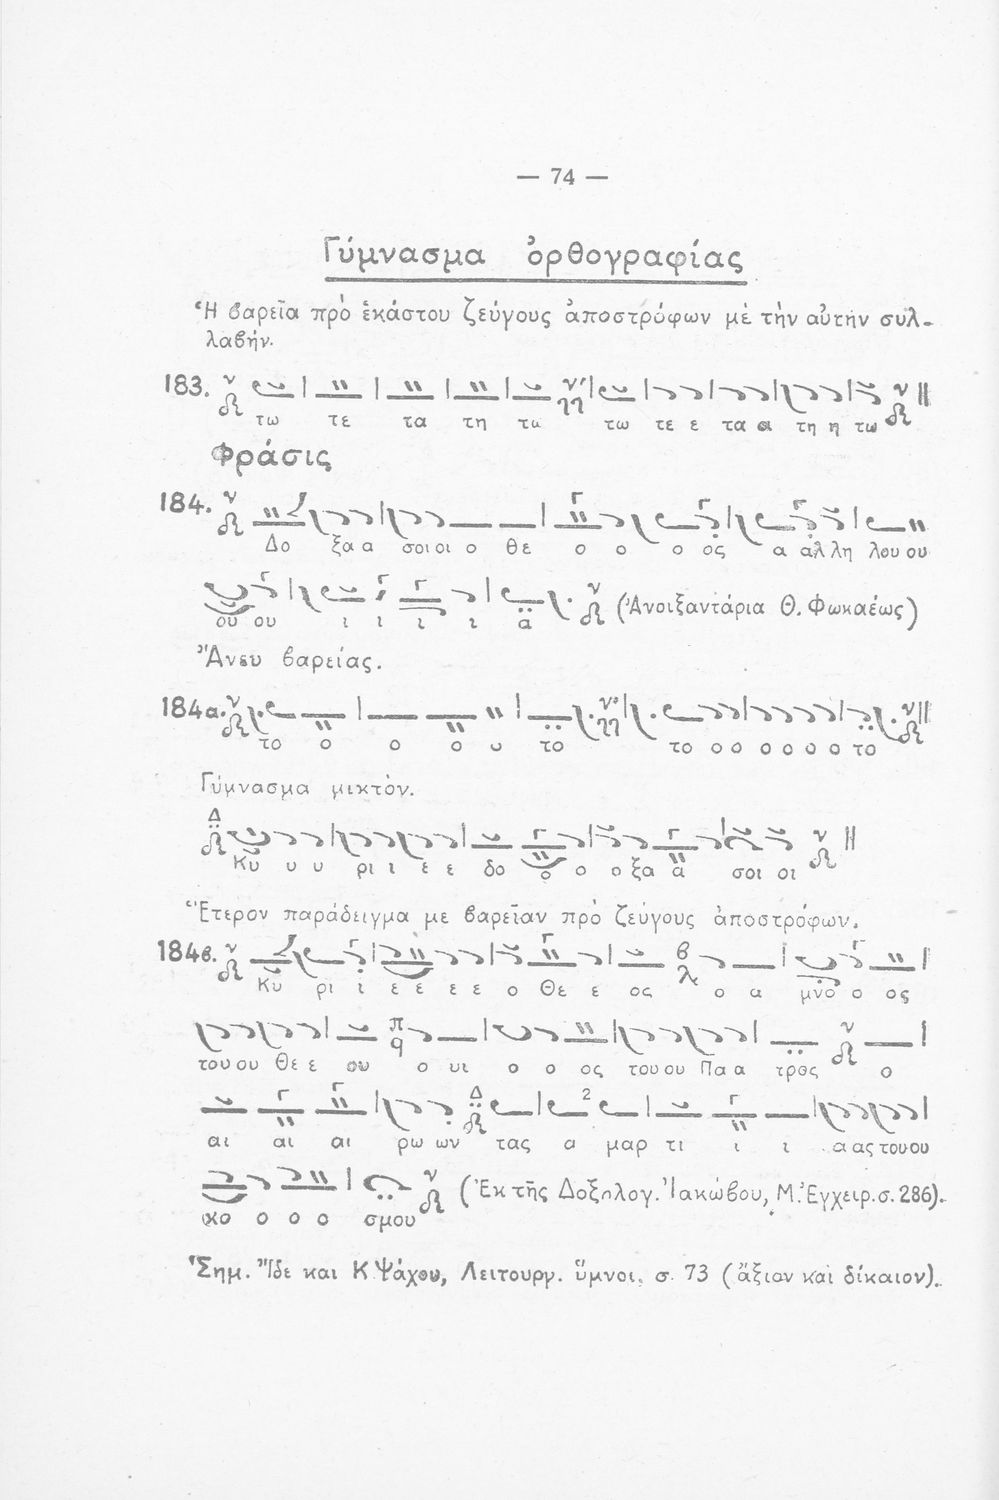 — 74 —
Γύμνασμα ὀρθογραφίας
Ἡ βαρεῖα πρὸ ἑκάστου ζεύγους ἀποστρόφων μὲ τὴν αὐτὴν συλ-
λαβήν.
183.
τω τε τα τη τω τω τε ε τα α τη η τω
Φράσις
184.
Δο ξα α σοι οι ο θε ο ο ο ος α αλ λη λου ου
ου ου ι ι ι ι α (Ἀνοιξαντάρια Θ. Φωκαέως)
Ἄνευ βαρείας.
184α.
το ο ο ο υ το το ο ο ο ο ο ο το
Γύμνασμα μικτὸν.
Κυ υ υ ρι ι ε ε δο ο ο ο ξα α σοι οι
Ἕτερον παράδειγμα με βαρεῖαν πρὸ ζεύγους ἀποστρόφων.
184β.
Κυ ρι ι ε ε ε ε ο Θε ε ος ο α μνο ο ος
του ου Θε ε ου ο υι ο ο ος του ου Πα α τρος ο
αι αι αι ρω ων τας α μαρ τι ι ι α ας του ου
κο ο ο ο σμου (Ἐκ τῆς Δοξολογ. Ἰακώβου, Μ. Ἐγχειρ. σ. 286).
Σημ. Ἴδε και Κ. Ψάχου, Λειτουργ. ὕμνοι, σ. 73 (ἄξιον καὶ δίκαιον).